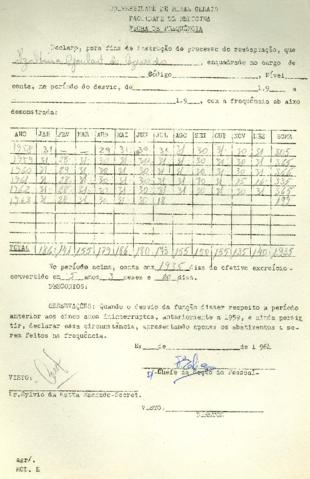 UNIVERSIDADE DE MINAS GERAIS
FACULDADE DE MEDICINA
FICHA DE FREQUÊNCIA
Declaro, para fins de instrução do processo de readaptação, que
enquadrado no cargo de
Código , Nível
conta, no período do desvio, de de 1.9 a
de 1.9 com a frequência ab aixo
demonstrada:
ANO JAN FEV MAR ABR MAI JUN JUL AGO SET OUT NOV DEZ SOMA
1958 31 29 31 30 31 31 30 31 30 31 305
1959 31 28 31 30 31 30 31 31 30 31 30 31 365
1960 31 29 31 30 31 30 31 31 30 31 30 31 366
1961 31 28 31 30 31 30 31 31 30 31 15 16 335
1962 31 28 31 30 31 30 31 31 30 31 30 31 365
1963 31 28 31 30 31 30 18
TOTAL 186 141 155 179 186 180 173 155 150 155 135 140 1935
No período acima, conta com 1935 dias de efetivo exercício-
convertido em 5 anos 3 meses e 20 dias.
DESCONTOS:
OBSERVAÇÃO: Quando o desvio da função disser respeito a período
anterior aos cinco anos ininterruptos, anteriormente a 1959, e ainda persis
tir, declarar essa circunstância, apresentando apenas os abatimentos a se-
rem feitos na frequência.
Em de de 1 96
Chefe da Seção do Pessoal.
VISTO:
Dr. Sylvio da Motta Macedo-Secret.
VISTO:
DIRETOR